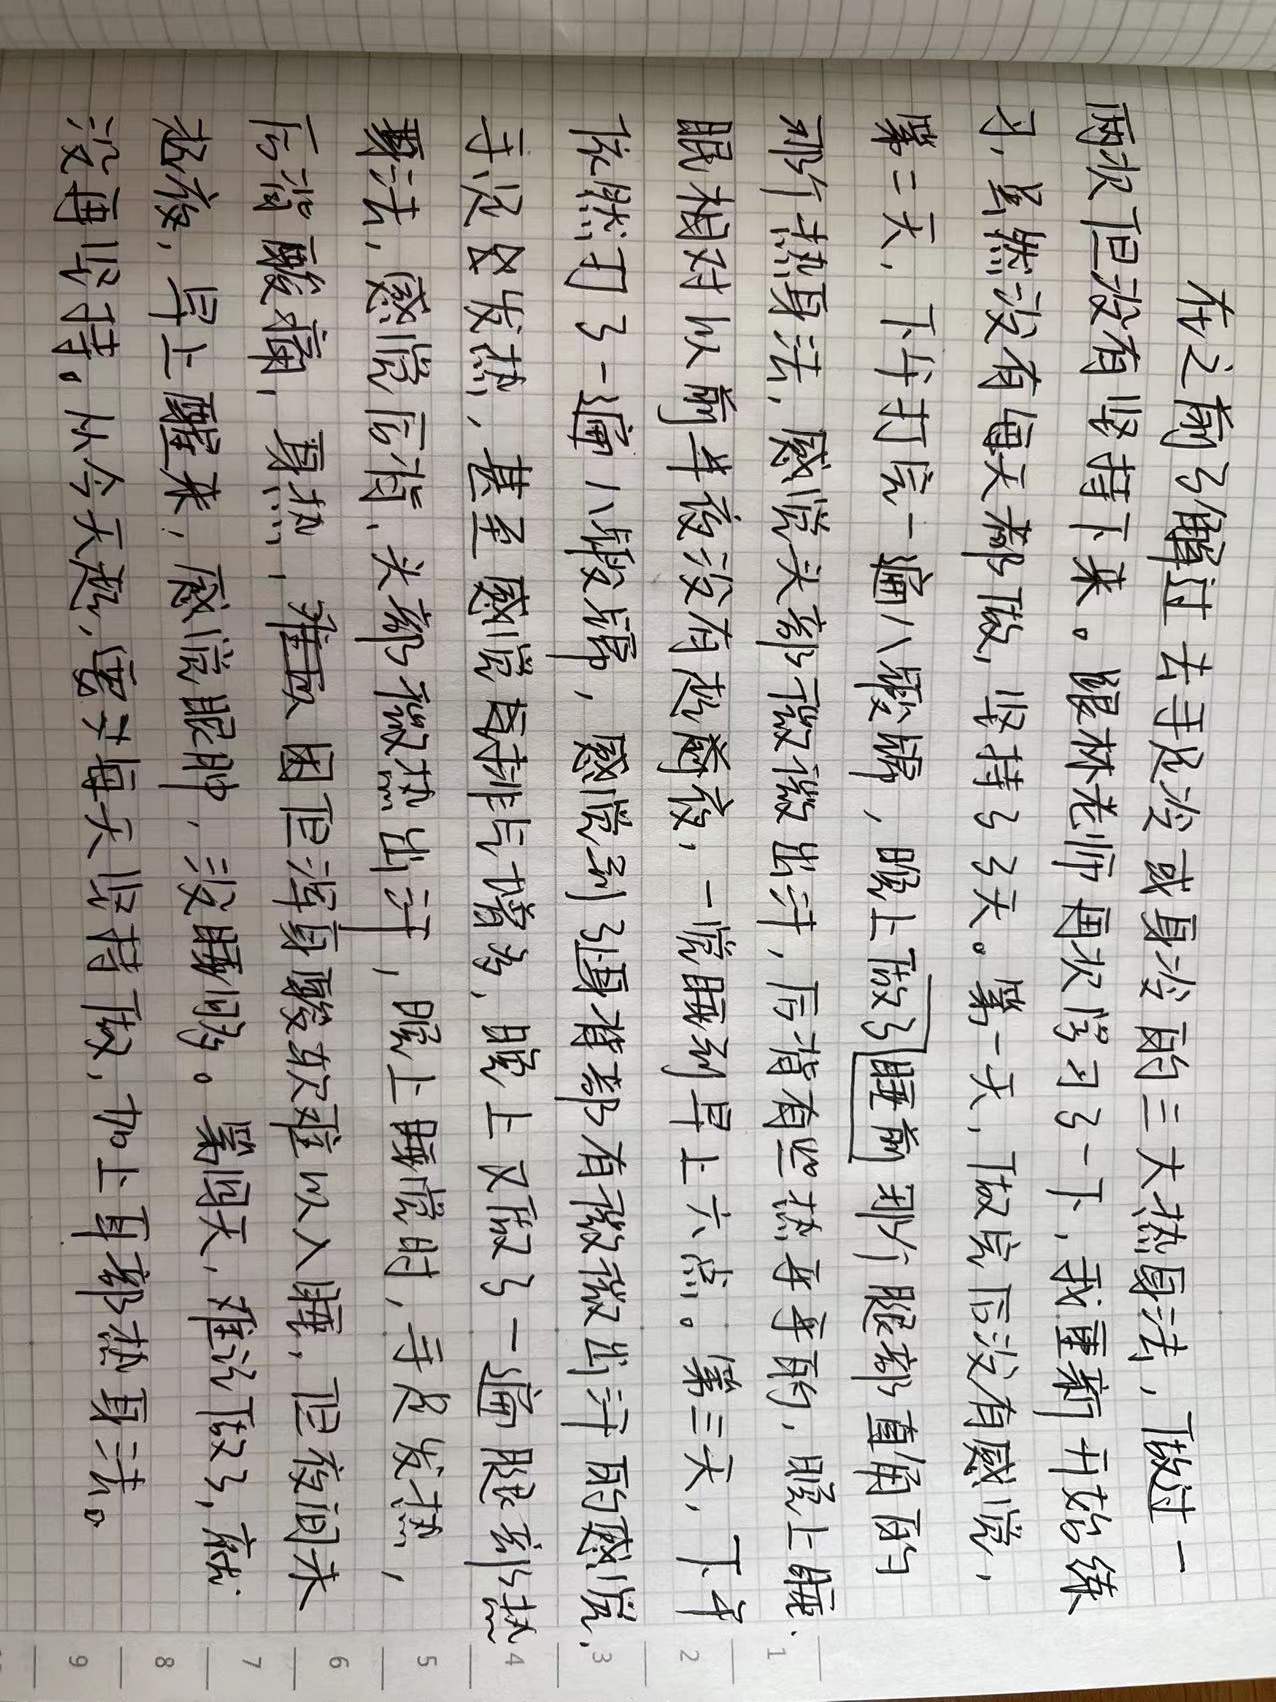 在之前了解过去手足冷或身冷的三大热身法，做过一
两次但没有坚持下来。跟林老师再次学习了一下，我重新开始练
习，虽然没有每天都做，坚持了3天。第一天，做完后没有感觉，
第二天，下午打完一遍八段锦，晚上做了睡前那个腿部直角的
那个热身法，感觉头部微微出汗，后背有些热乎乎的，晚上睡
眠相对以前半夜没有起前夜，一觉睡到早上六点。第三天，下午
依然打了一遍八段锦，感觉到引后背都有微微出汗的感觉，
手没及发热，甚至感觉自排气增多，晚上又做了一遍腿部热
身法，感觉后背、头部微热出汗，晚上睡觉时，手足发热，
后背酸痛，身热，难 因但浑身酸软难以入睡，但夜间未
起夜，早上醒来，感觉眼肿，没睡够。第四天，难没做了，就
没再坚持。从今天起，要求每天坚持做，加上耳部热身法。
1
2
3
4
5
6
7
8
9